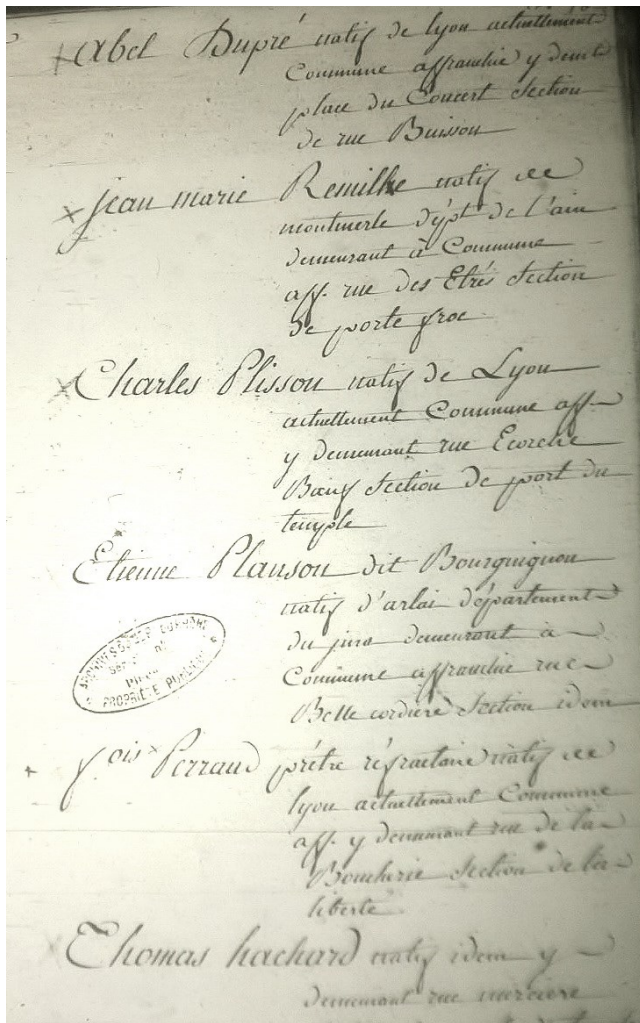 Abel Dupré natif de lyon actuellement
Commune affranchie y demt
place du Concert Section
de rue Buisson
jean marie Remilhe natif de
montmerle dépt de l'ain
demeurant à Commune
aff. rue des Etrés Section
de porte froc
Charles Plisson natif de Lyon
actuellement Commune aff
y demeurant rue Ecorche
Bœuf Section de port du
temple
Etienne Planson dit Bourguignon
natif d'arlai département
du jura demeurant à
Commune affranchie rue
Belle cordiere Section idem
PROPRIÈTE PUBLIQUE
fois Perraud prêtre réfractaire natif de
lyon actuellement Commune
aff. y demeurant rue de la
Boucherie Section de la
liberté
Thomas hachard natif idem y
demeurant rue merciere